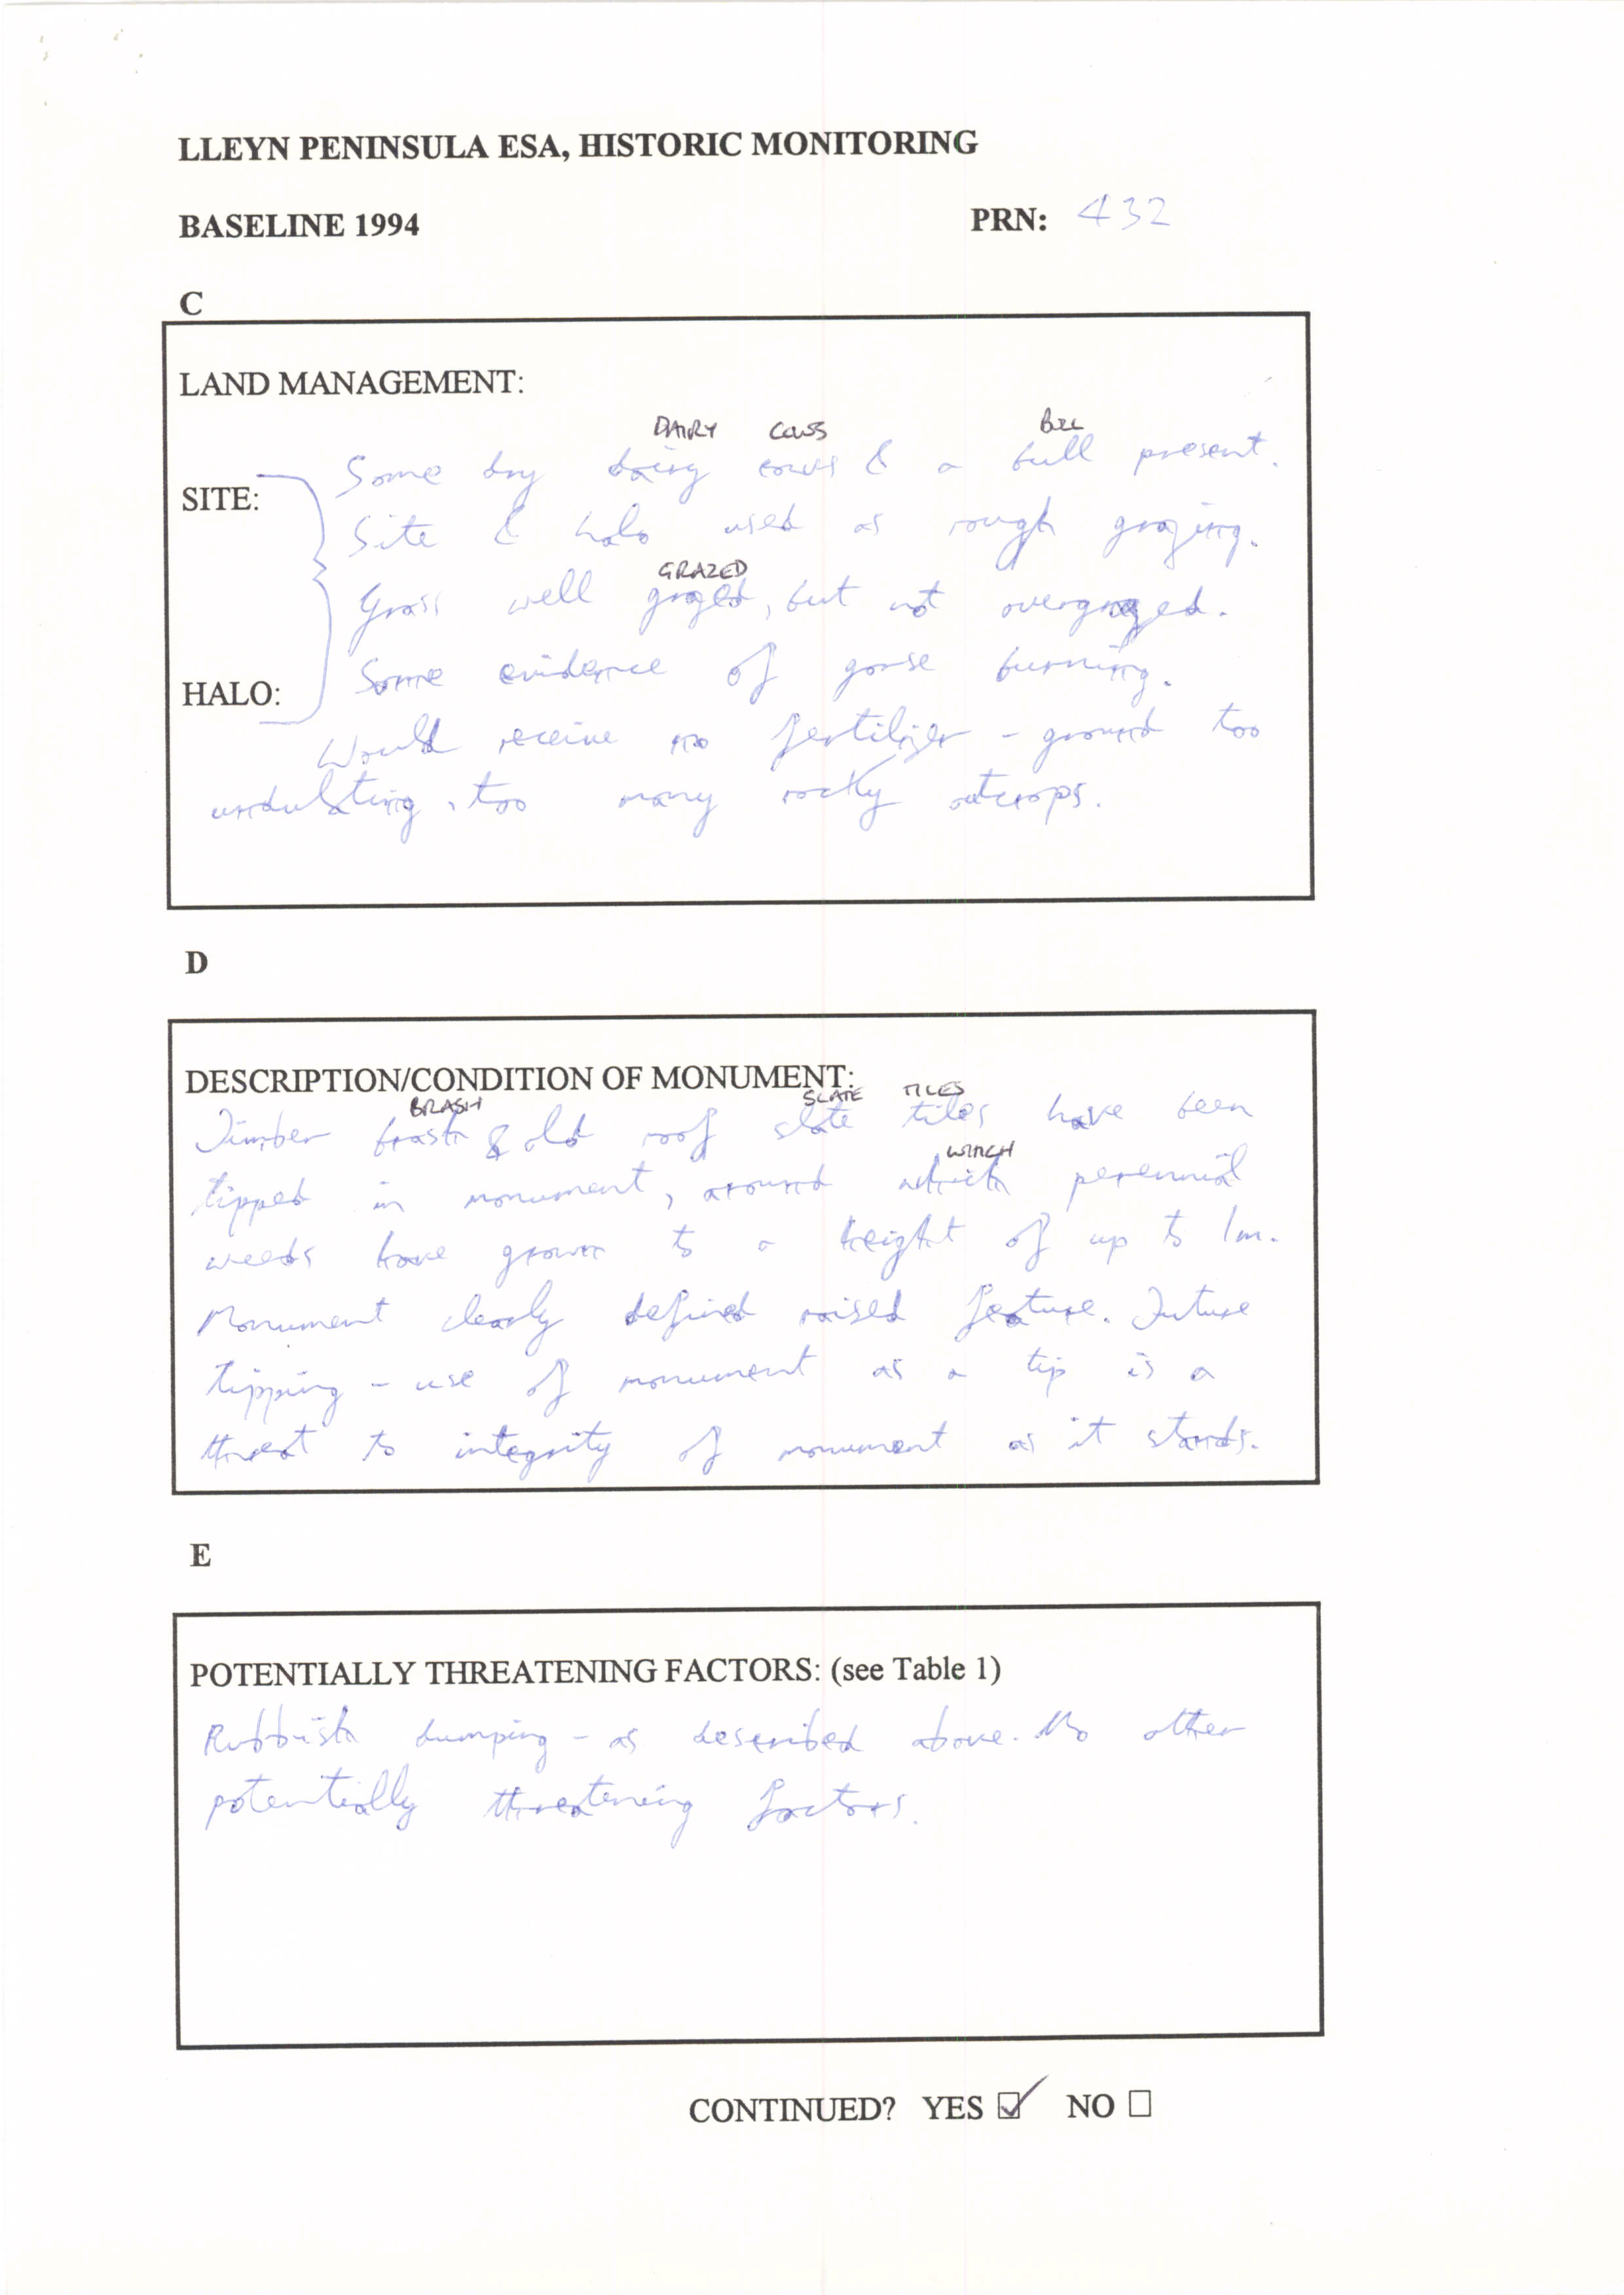 LLEYN PENINSULA ESA, HISTORIC MONITORING
BASELINE 1994 PRN: 432
C
LAND MANAGEMENT:
DAIRY COWS BULL
SITE: Some dry dairy cows & a bull present.
Site & halo used as rough grazing.
GRAZED
Grass well grazed, but not overgrazed.
HALO: Some evidence of gorse burning.
Would receive no fertilizer - ground too
undulating, too many rocky outcrops.
D
DESCRIPTION/CONDITION OF MONUMENT:
BRASH SLATE TILES
Timber brash & old roof slate tiles have been
WHICH
tipped in monument, around which perennial
weeds have grown to a height of up to 1m.
Monument clearly defined raised feature. Future
tipping - use of monument as a tip is a
threat to integrity of monument as it stands.
E
POTENTIALLY THREATENING FACTORS: (see Table 1)
Rubbish dumping - as described above. No other
potentially threatening factors.
CONTINUED? YES ☑ NO ☐